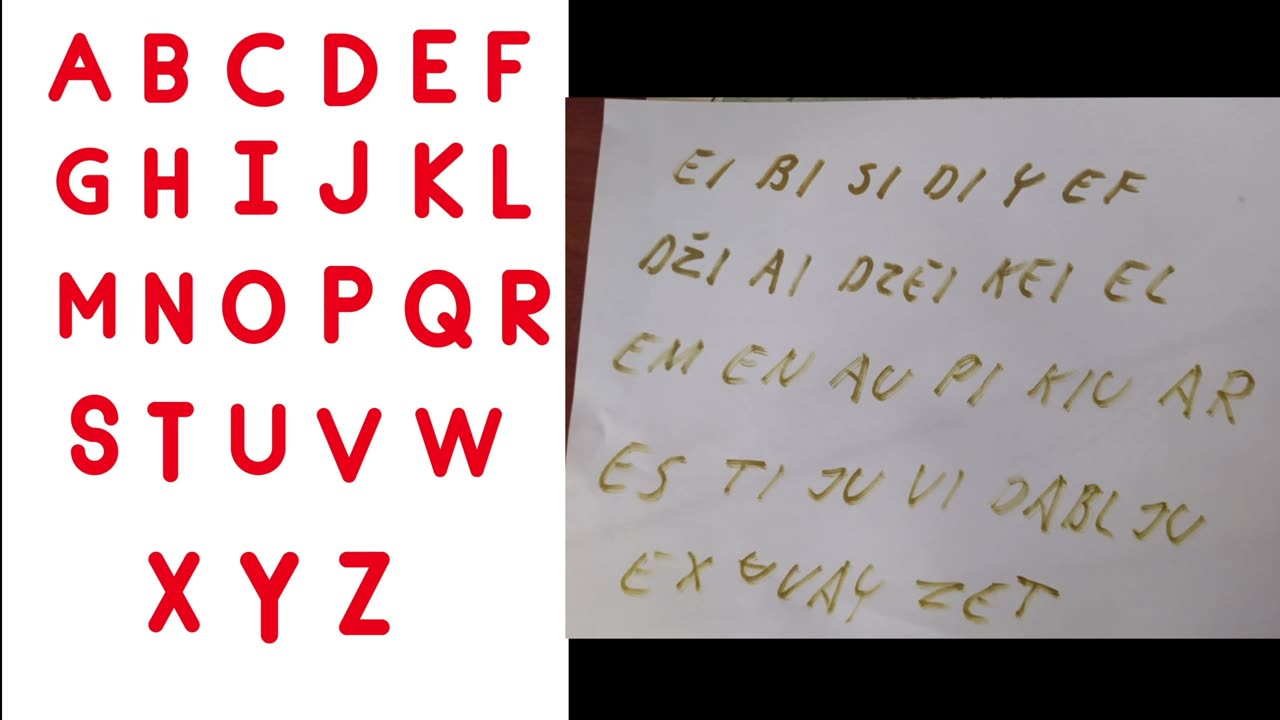 A B C D E F
G H I J K L
M N O P Q R
S T U V W
X Y Z
EI BI SI DI Y EF
DŽI AI DZEI KEI EL
EM EN AU PI KIU AR
ES TI JU VI DABL JU
EX UVAY ZET